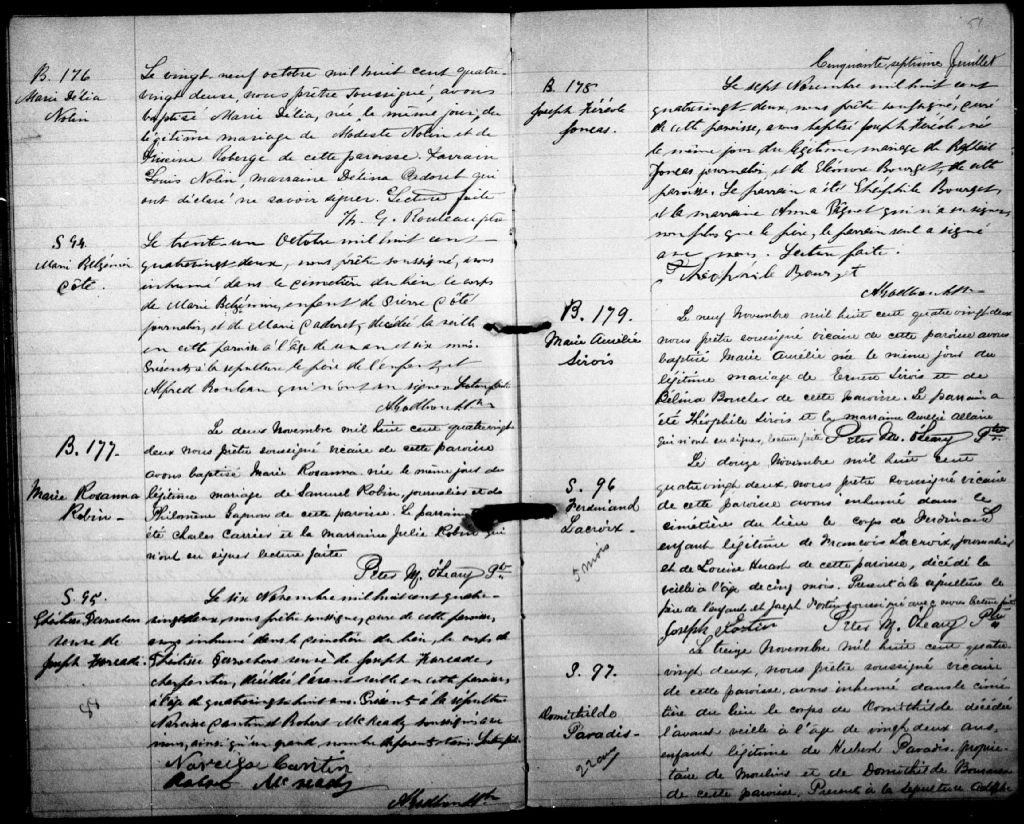 B. 176
Marie Délia
Nolin
Le vingt neuf octobre mil huit cent quatre-
vingt deux, nous prêtre soussigné, avons
baptisé Marie Délia, née le même jour, du
légitime mariage de Modeste Nolin et de
Roberge de cette paroisse. Parrain
Louis Nolin, marraine Délina Cadoret qui
ont déclaré ne savoir signer. Lecture faite
Th. G. Rouleau ptre
S 94.
Marie
Côté.
Le trente un Octobre mil huit cent
quatrevingt deux, nous prêtre soussigné, avons
inhumé dans le cimetière du lieu le corps
de Marie enfant de Pierre Côté
journalier, et de Marie Cadoret, décédée la veille
en cette paroisse à l'âge de un an et six mois.
Présents à la sépulture le père de l'enfant, et
Alfred qui n'ont su signer. Lecture faite.
B. 177.
Marie Rosanna
Robin -
Le deux Novembre mil huit cent quatre vingt
deux nous prêtre soussigné vicaire de cette paroisse
avons baptisé Marie Rosanna née le même jour du
légitime mariage de Samuel Robin, journalier et de
Philomène Gagnon de cette paroisse. Le parrain a
été Charles Carrier et la marraine Julie Robin qui
n'ont su signer lecture faite
Peter M. O'Leary Ptre
S. 95.
veuve de
Joseph
Le six Novembre mil huit cent quatre-
vingt deux, nous prêtre soussigné, curé de cette paroisse,
avons inhumé dans le cimetière du lieu, le corps de
veuve de Joseph
charpentier, décédée l'avant veille en cette paroisse,
à l'âge de quatrevingt huit ans. Présents à la sépulture
Narcisse Cantin et Robert McReady soussignés avec
nous, ainsi qu'un grand nombre Lecture faite
Narcisse Cantin
Robert McReady
51
Cinquante septième feuillet
B. 178
Joseph
Joncas.
Le sept Novembre mil huit cent
quatrevingt deux, nous prêtre soussigné, curé
de cette paroisse, avons baptisé Joseph né
le même jour du légitime mariage de
Joncas journalier, et de Eléonore Bourget, de cette
paroisse. Le parrain a été Théophile Bourget,
et la marraine Anna Paquet qui n'a su signer
non plus que le père, le parrain seul a signé
avec nous. Lecture faite.
Théophile Bourget
B. 179.
Marie Aurélie
Sirois
Le neuf Novembre mil huit cent quatre vingt deux
nous prêtre soussigné vicaire de cette paroisse avons
baptisé Marie Aurélie née le même jour du
légitime mariage de Ernest Sirois et de
Délina Boucher de cette paroisse. Le parrain a
été Théophile Sirois et la marraine Aurélie Allaire
qui n'ont su signer, lecture faite Peter M. O'Leary Ptre
S. 96
Ferdinand
Lacroix -
5 mois
Le douze Novembre mil huit cent
quatre vingt deux, nous prêtre soussigné vicaire
de cette paroisse avons inhumé dans le
cimetière du lieu le corps de Ferdinand
enfant légitime de François Lacroix, journalier
et de Louise Huart de cette paroisse, décédé la
veille à l'âge de cinq mois. Présent à la sépulture le
père de l'enfant et Joseph Fortin soussigné avec nous lecture faite
Joseph Fortin Peter M. O'Leary Ptre
S. 97.
Domithilde
Paradis -
22 ans
Le treize Novembre mil huit cent quatre
vingt deux, nous prêtre soussigné vicaire
de cette paroisse, avons inhumé dans le cime
tière du lieu le corps de Domithilde décédée
l'avant veille à l'âge de vingt deux ans,
enfant légitime de Hubert Paradis, proprié-
taire de Moulins et de Domithilde
de cette paroisse, Présent à la sépulture Adolphe